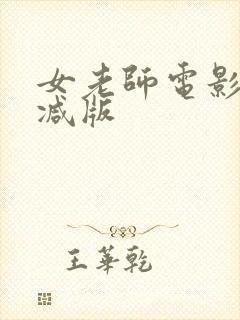 女老師電影
減版
王華乾